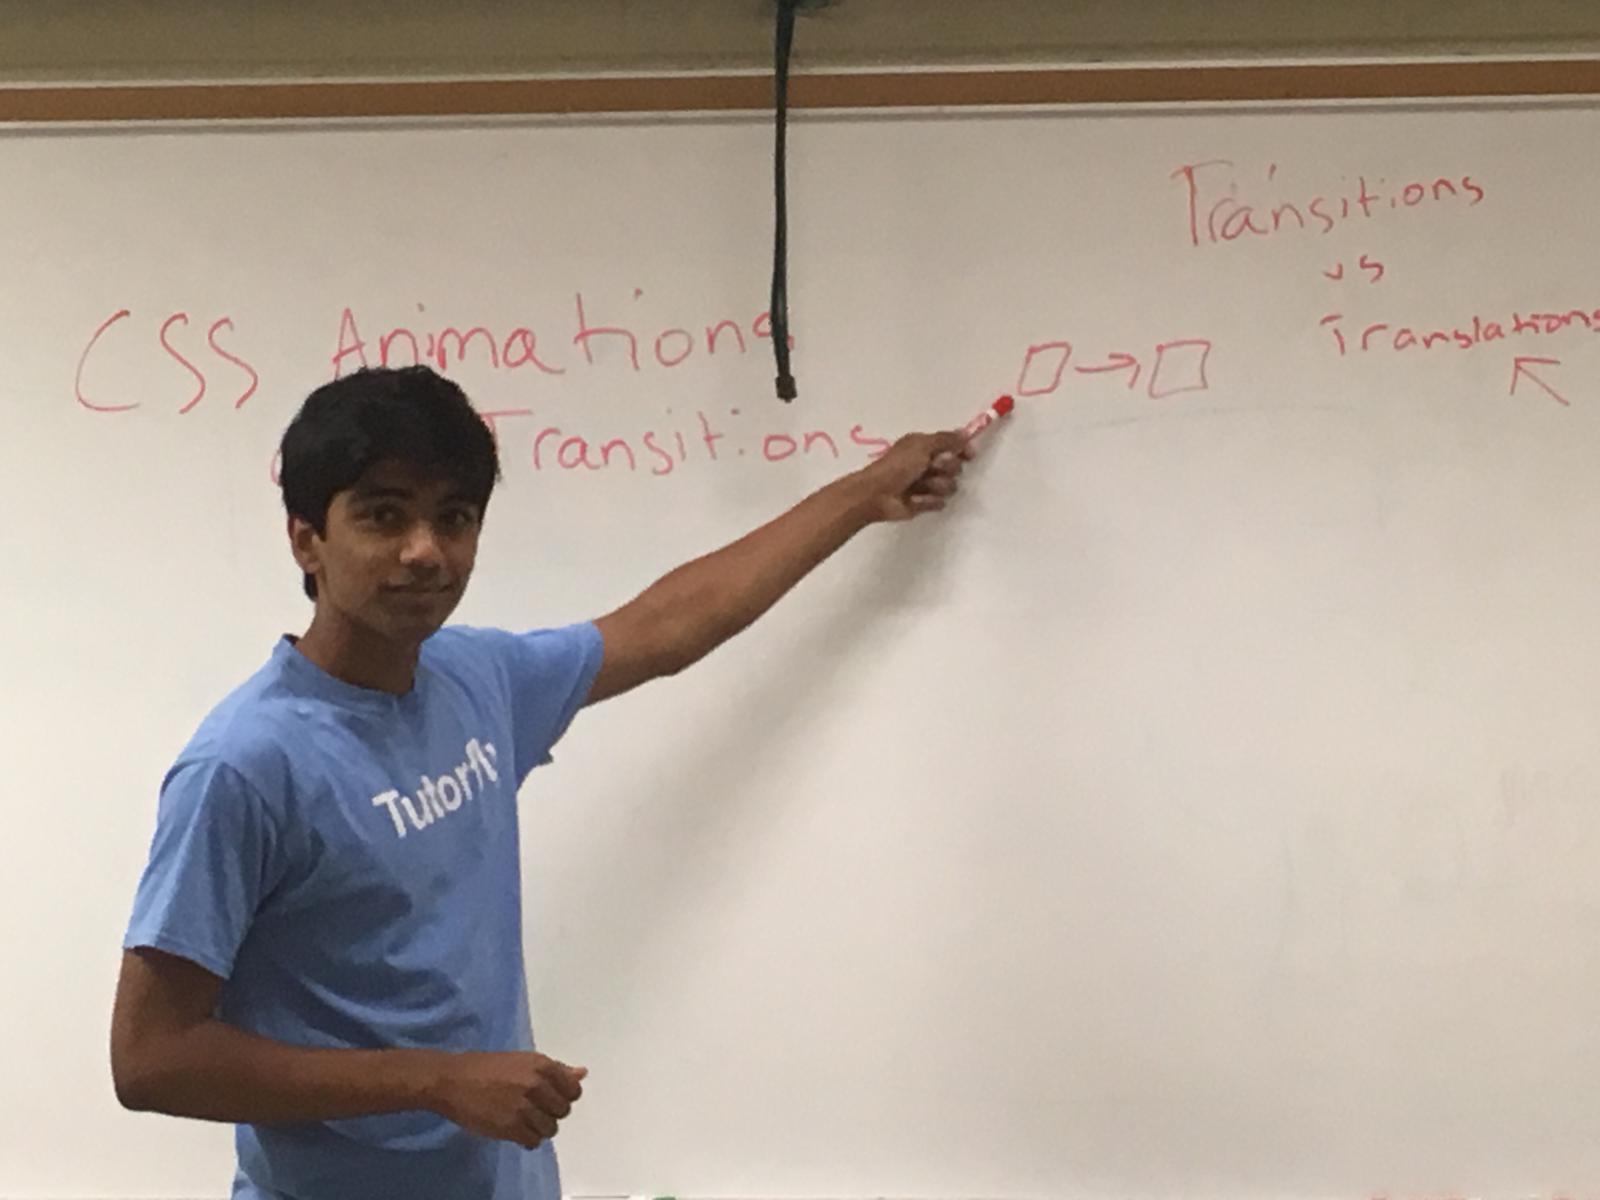 CSS Animations
Transitions
Transitions
vs
Translations
Tutorfly